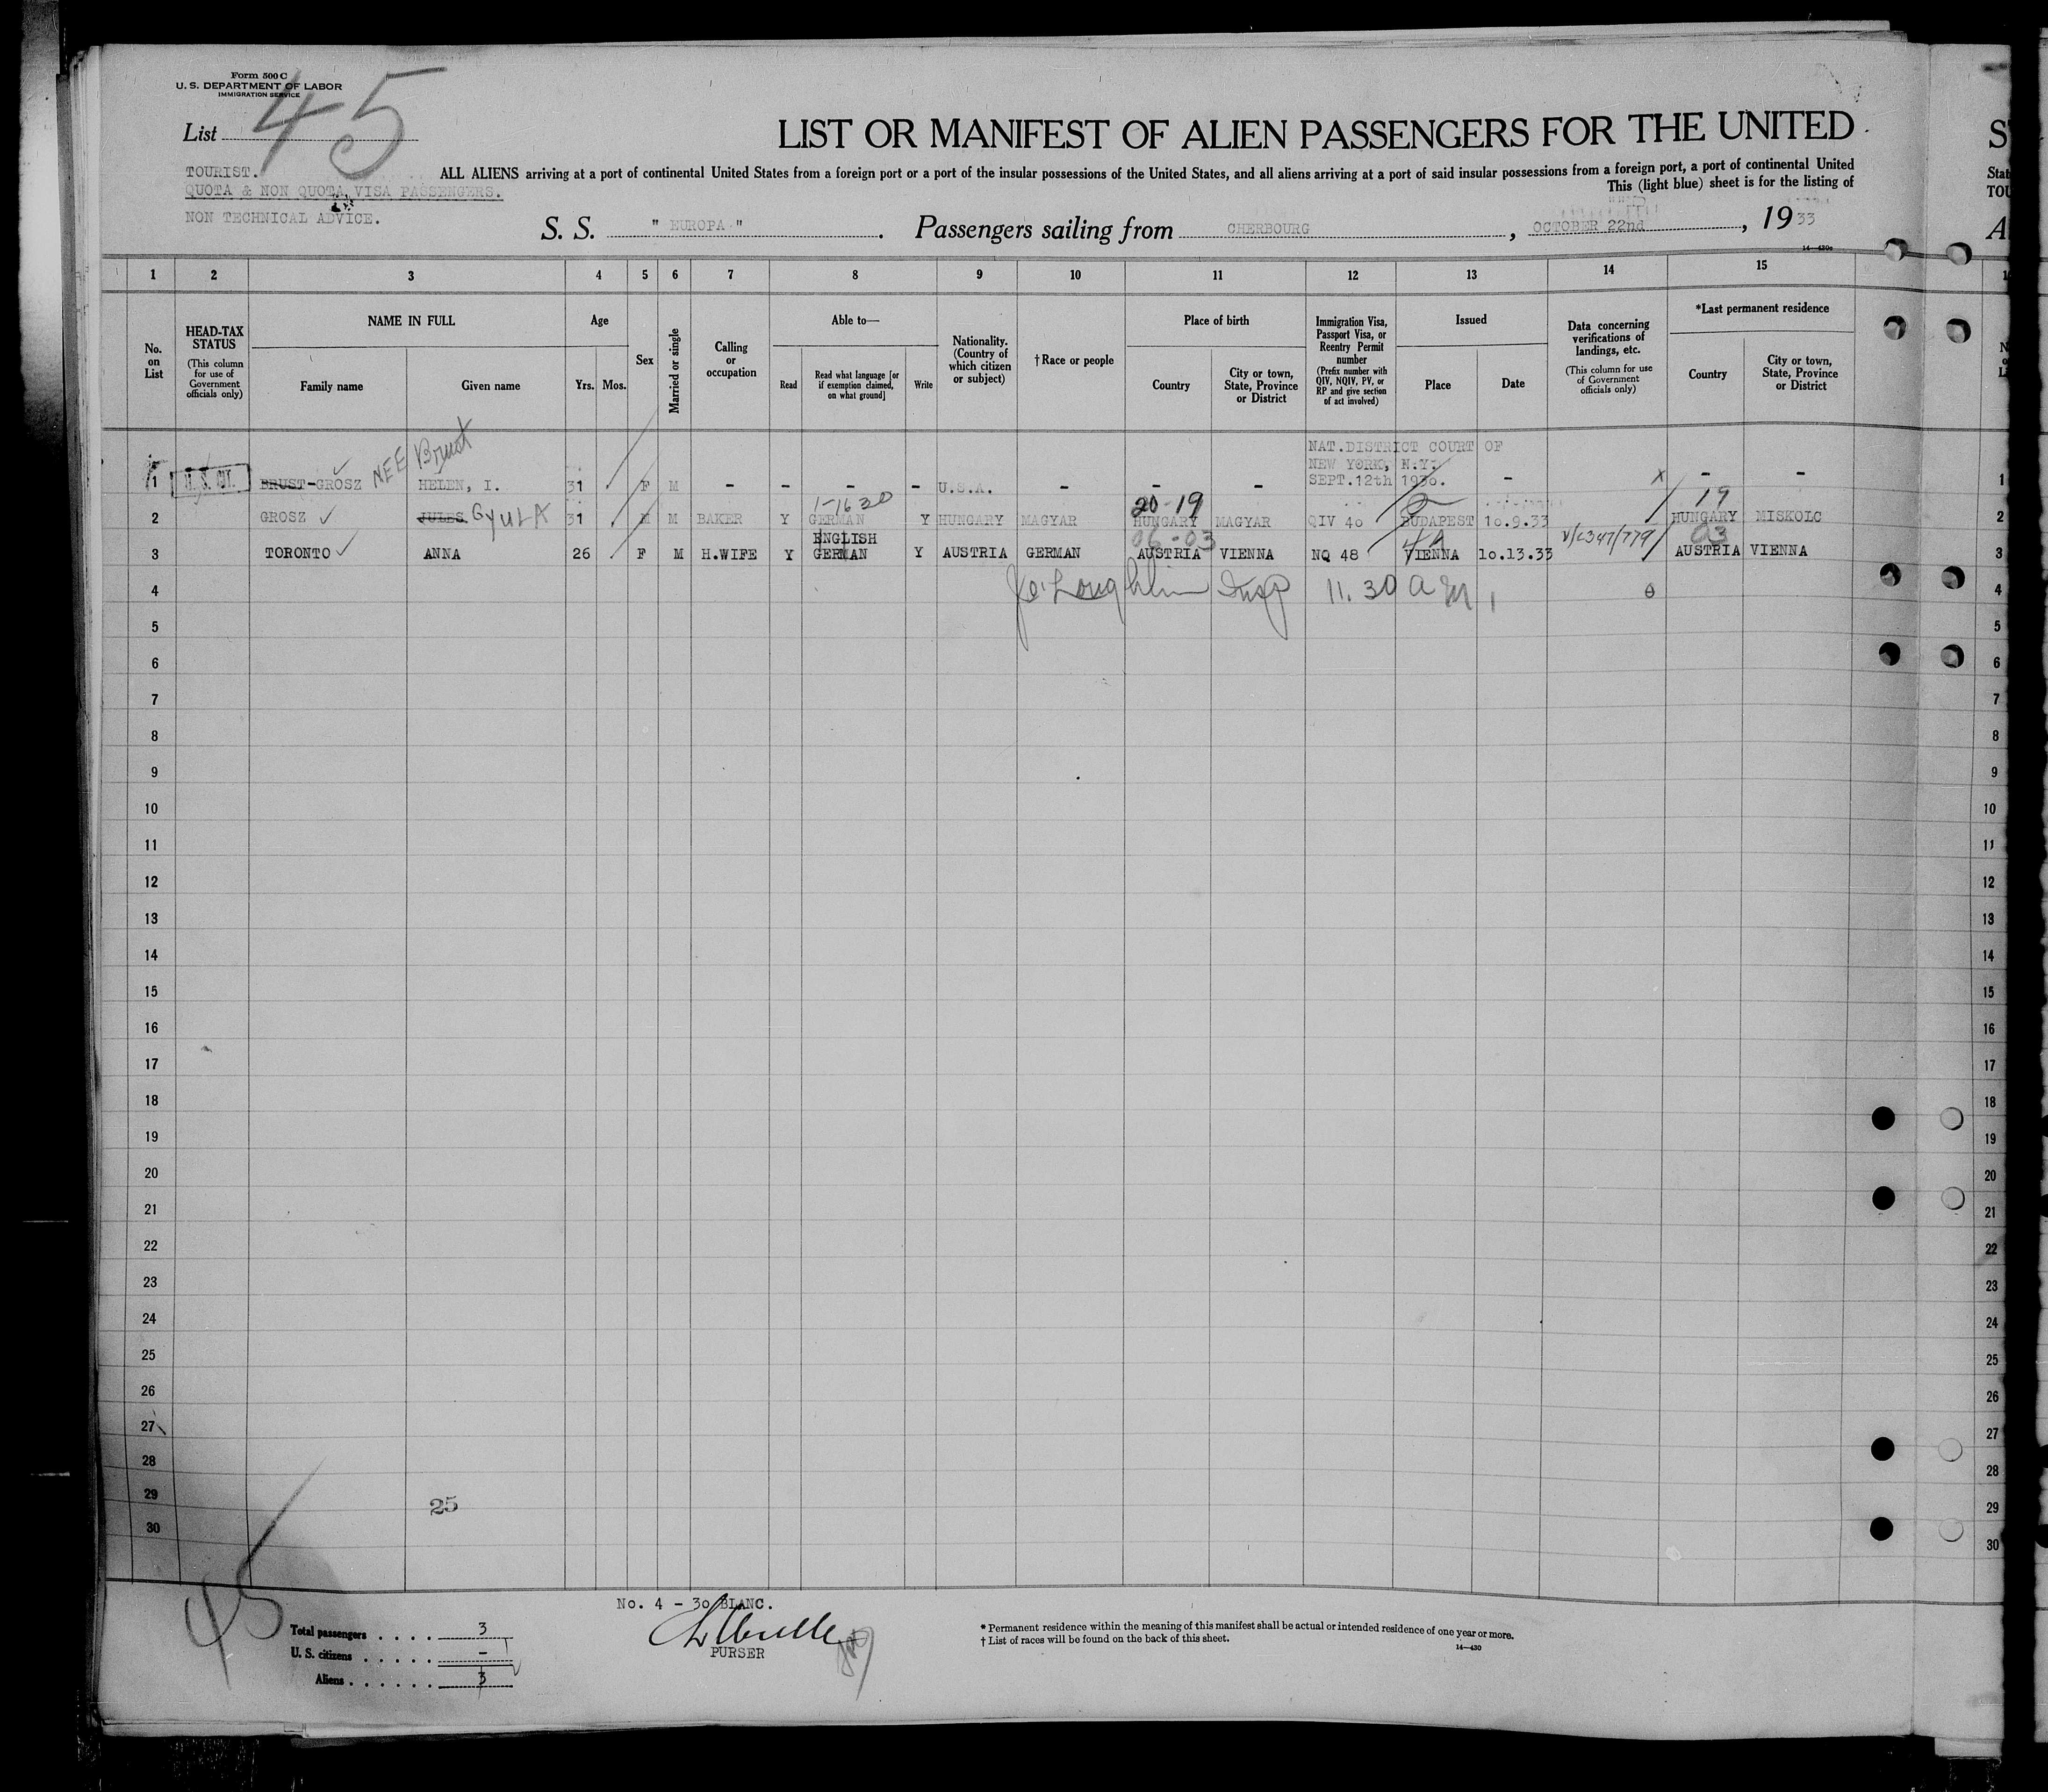 Form 500 C
U. S. DEPARTMENT OF LABOR
IMMIGRATION SERVICE
List 45
LIST OR MANIFEST OF ALIEN PASSENGERS FOR THE UNITED
TOURIST.
QUOTA & NON QUOTA VISA PASSENGERS.
NON TECHNICAL ADVICE.
ALL ALIENS arriving at a port of continental United States from a foreign port or a port of the insular possessions of the United States, and all aliens arriving at a port of said insular possessions from a foreign port, a port of continental United
This (light blue) sheet is for the listing of
S. S. " EUROPA " . Passengers sailing from CHERBOURG , OCTOBER 22nd , 19 33
14—430c
1 2 3 4 5 6 7 8 9 10 11 12 13 14 15
No. on List
HEAD-TAX STATUS (This column for use of Government officials only)
NAME IN FULL
Family name Given name
Age
Yrs. Mos.
Sex
Married or single
Calling or occupation
Able to—
Read Read what language [or if exemption claimed, on what ground] Write
Nationality. (Country of which citizen or subject)
† Race or people
Place of birth
Country City or town, State, Province or District
Immigration Visa, Passport Visa, or Reentry Permit number (Prefix number with QIV, NQIV, PV, or RP and give section of act involved)
Issued
Place Date
Data concerning verifications of landings, etc. (This column for use of Government officials only)
*Last permanent residence
Country City or town, State, Province or District
NEE Brust
NAT. DISTRICT COURT OF
NEW YORK, N.Y.
1 BRUST-GROSZ HELEN, I. 31 F M - - - - U.S.A. - - - SEPT.12th 1930. - x - - 1
1-1630 20-19 19
2 GROSZ JULES GYULA 31 M M BAKER Y GERMAN Y HUNGARY MAGYAR HUNGARY MAGYAR QIV 40 BUDAPEST 10.9.33 HUNGARY MISKOLC 2
ENGLISH 06-03 03
3 TORONTO ANNA 26 F M H.WIFE Y GERMAN Y AUSTRIA GERMAN AUSTRIA VIENNA NQ 48 VIENNA 10.13.33 AUSTRIA VIENNA 3
4 Insp 11.30 a m 4
5 5
6 6
7 7
8 8
9 9
10 10
11 11
12 12
13 13
14 14
15 15
16 16
17 17
18 18
19 19
20 20
21 21
22 22
23 23
24 24
25 25
26 26
27 27
28 28
29 25 29
30 30
45
No. 4 - 30 BLANC.
PURSER
Total passengers . . . . 3
U. S. citizens . . . . . -
Aliens . . . . . . 3
* Permanent residence within the meaning of this manifest shall be actual or intended residence of one year or more.
† List of races will be found on the back of this sheet.
14—430